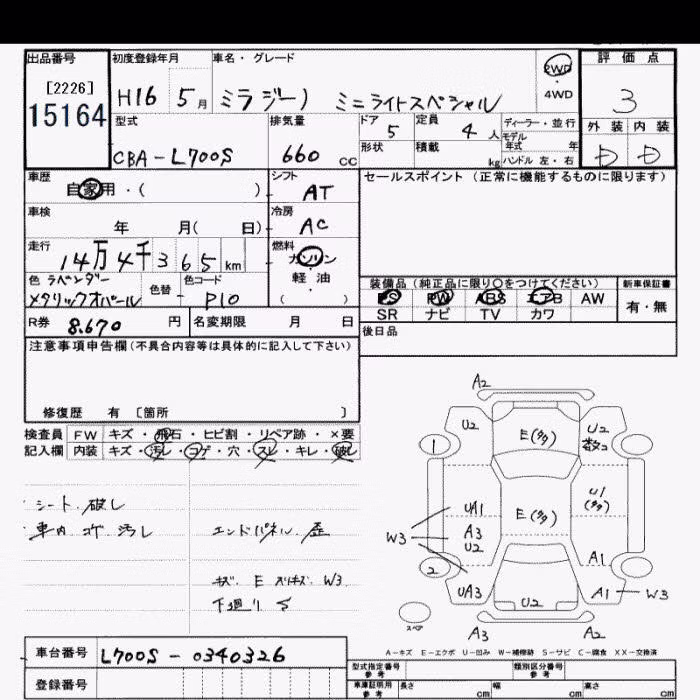 出品番号 初度登録年月 車名・グレード 評価点
[2226]
15164
H16 5月 ミラジーノ ミニライトスペシャル 2WD 4WD 3
型式 排気量 ドア 定員 ディーラー・並行 外装 内装
CBA-L700S 660 cc 5 4人 モデル年式 年 D D
形状 積載 kg ハンドル 左・右
車歴 シフト セールスポイント(正常に機能するものに限ります)
自家用・( ) AT
車検 冷房
年 月( 日) AC
走行 燃料
14万4千365km ガソリン・軽油
( )
色 ラベンダーメタリックオパール 色替 色コード
- P10
装備品(純正品に限り○をつけてください) 新車保証書
PS PW ABS エアB AW 有・無
SR ナビ TV カワ
R券 8.670円 名変期限 月 日 後日品
注意事項申告欄(不具合内容等は具体的に記入して下さい)
修復歴 有 [箇所 ]
検査員 FW キズ・飛石・ヒビ割・リペア跡・×要
記入欄 内装 キズ・汚レ・コゲ・穴・スレ・キレ・破レ
シート 破レ
車内 コゲ 汚レ
エンドパネル 歪
キズ E スリキズ W3
下廻り S
A2
U2 E(多) U2 数コ
1
UA1 E(多) U1(多)
W3 A3 U2
2 A1
UA3 U2 A1 W3
スペア
A3 A2
A-キズ E-エクボ U-凹み W-補修跡 S-サビ C-腐食 XX-交換済
車台番号 L700S-0340326
登録番号
型式指定番号 参考 類別区分番号 参考
車庫証明用 参考 長さ cm 幅 cm 高さ cm